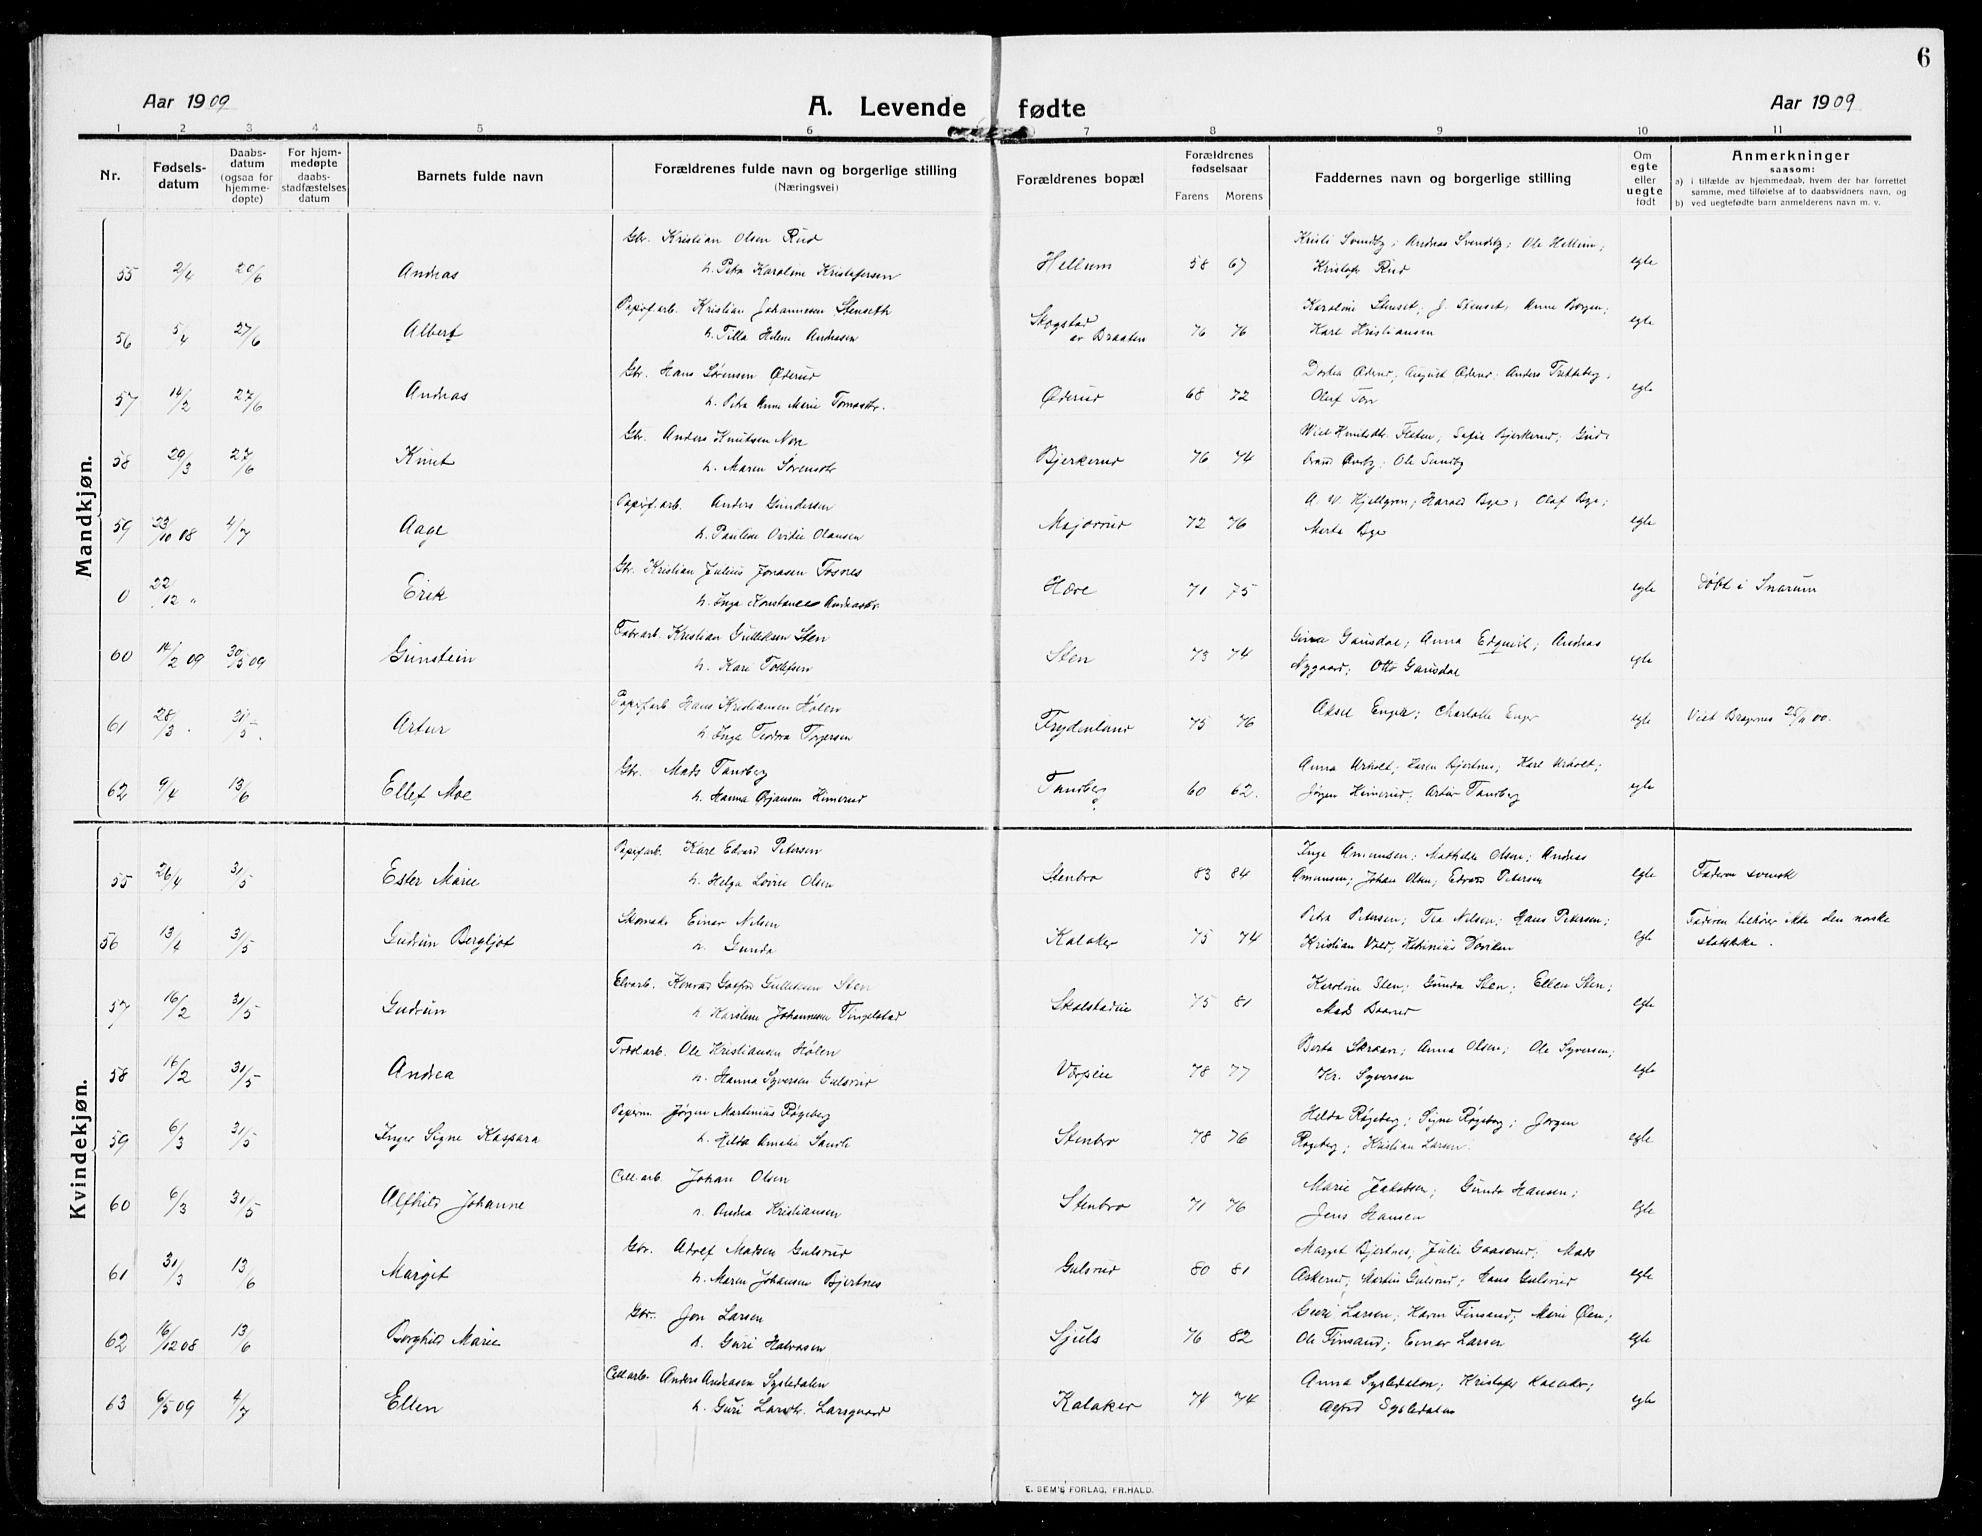 6
Aar 1909
A. Levende fødte
Aar 1909
1 2 3 4 5 6 7 8 9 10 11
Nr.
Fødsels-
datum
Daabs-
datum
(ogsaa for
hjemme-
døpte)
For hjem-
medøpte
daabs-
stadfæstelses
datum
Barnets fulde navn
Forældrenes fulde navn og borgerlige stilling
(Næringsvei)
Forældrenes bopæl
Forældrenes
fødselsaar
Farens Morens
Faddernes navn og borgerlige stilling
Om
egte
eller
uegte
født
Anmerkninger
saasom:
a) i tilfælde av hjemmedaab, hvem der har forrettet
samme, med tilføielse af to daabsvidners navn, og
b) ved uegtefødte barn anmelderens navn m. v.
Mandkjøn.
Gbr. Kristian Olsen Rud
55 2/4 20/6 Andreas
h. Petra Karoline Kristofersen
Hellum 58 67
Andreas Svendby; Ole Hellum;
Kristofer Rud
egte
Papirf.arb. Kristian Johannesen Stenseth
56 5/4 27/6 Albert
h. Tilla Helene Andreasen
Skogstad
av Braaten
76 76
Karoline Stenset; J. Stenset; Anne Borgen;
Karl Kristiansen
egte
Gbr. Hans Sørensen Øderud
57 14/2 27/6 Andreas
h. Petra Anne Marie Tomasdtr.
Øderud 68 72
Dortea Øderud; August Øderud; Anders Tretteberg;
Oluf
egte
Gbr. Anders Knutsen Nore
58 20/3 27/6 Knut
h. Maren Sørensdtr
Bjerkerud 76 74
Knutsdtr. Flaten; Sofie Bjerkerud; Gud-
brand Overby; Ole Sundby
Papirf.arb. Anders Gundersen
59 23/10 08 4/7 Aage
h. Pauline Olausen
Majorrud 72 76
A. W. Kjellgren; Harald Bye; Olaf Bye;
Marta Bye
egte
Gbr. Kristian Julius Jonasen Tosnes
0 22/12 " Erik
h. Inga Konstance Andreasdtr.
Hære 71 75
egte
Døbt i Snarum
Fabr.arb. Kristian Gulliksen Sten
60 14/2 09 30/5 09 Gunstein
h. Kari Tollefsen
Sten 73 74
Gina Gausdal; Anna Edquist; Andreas
Nygaard; Otto Gausdal
egte
Papirf.arb Hans Kristiansen Holen
61 28/3 31/5 Artur
h. Inga Teodora Torgersen
Frydenlund 75 76
Aksel Enger; Charlotte Enger
egte
Viet Bragernes 25/11 00.
Gbr. Mads Tandberg
62 9/4 13/6 Ellef Moe
h. Hanna Ørjansen Himerud
Tandberg 60 62.
Anna Urholt; Karen Bjertnes; Karl Urholt;
Jørgen Himerud; Artur Tandberg
egte
Kvindekjøn.
Papirf.arb. Karl Edvard Petersen
55 26/4 31/5 Ester Marie
h. Helga Lovise Olsen
Stenbro 83 84
Inga Amundsen; Mathilde Olsen; Andreas
Amundsen; Johan Olsen; Edvard Petersen
egte
Faderen svensk
Skomak. Einar Nilsen
56 13/4 31/5 Gudrun Bergljot
h. Gunda
Kalaker 75 74
Petra Petersen; Tea Nilsen; Hans Petersen;
Kristian Vold; Katinius Doviken
egte
Faderen tilhører ikke den norske
statskirke.
Elvarb. Konrad Gotfred Gulliksen Sten
57 16/2 31/5 Gudrun
h. Karoline Johannesen Tingelstad
Skalstadeie 75 81
Karoline Sten; Gunda Sten; Ellen Sten;
egte
Træsl.arb. Ole Kristiansen Holen
58 16/2 31/5 Andrea
h. Hanna Syversen Gulsrud
78 77
Berta Skraan; Anna Olsen; Ole Syversen;
Kr. Syversen
egte
Papirm. Jørgen Martinius Røgeberg
59 6/3 31/5 Inger Signe Kaspara
h. Hilda Amalie Sandli
Stenbro 78 76
Helda Røgeberg; Signe Røgeberg; Jørgen
Røgeberg; Kristian Larsen.
egte
Cell.arb. Johan Olsen
60 6/3 31/5 Alfhild Johanne
h. Andrea Kristiansen
Stenbro 71 76
Marie Jakobsen; Gunda Hansen;
Jens Hansen
egte
Gbr. Adolf Madsen Gulsrud
61 31/3 13/6 Margit
h. Maren Johansen Bjertnes
Gulsrud 80 81
Margit Bjertnes, Julie Gaaserud; Mads
Askerud; Martin Gulsrud; Hans Gulsrud
egte
Gbr. Jon Larsen
62 16/12 08 13/6 Borghild Marie
h. Guri Halvorsen
Sjuls 76 82
Guri Larsen; Karen Finsand; Marie Øen;
Ole Finsand; Einar Larsen
egte
Cell.arb. Anders Andreasen Sysledalen
63 6/5 09 4/7 Ellen
h. Guri Larsdtr. Larsgaard
Kalaker 74 74
Anna Sysledalen; Kristofer Kalaker;
Alfred Sysledalen
egte
E. SEM'S FORLAG, FR.HALD.